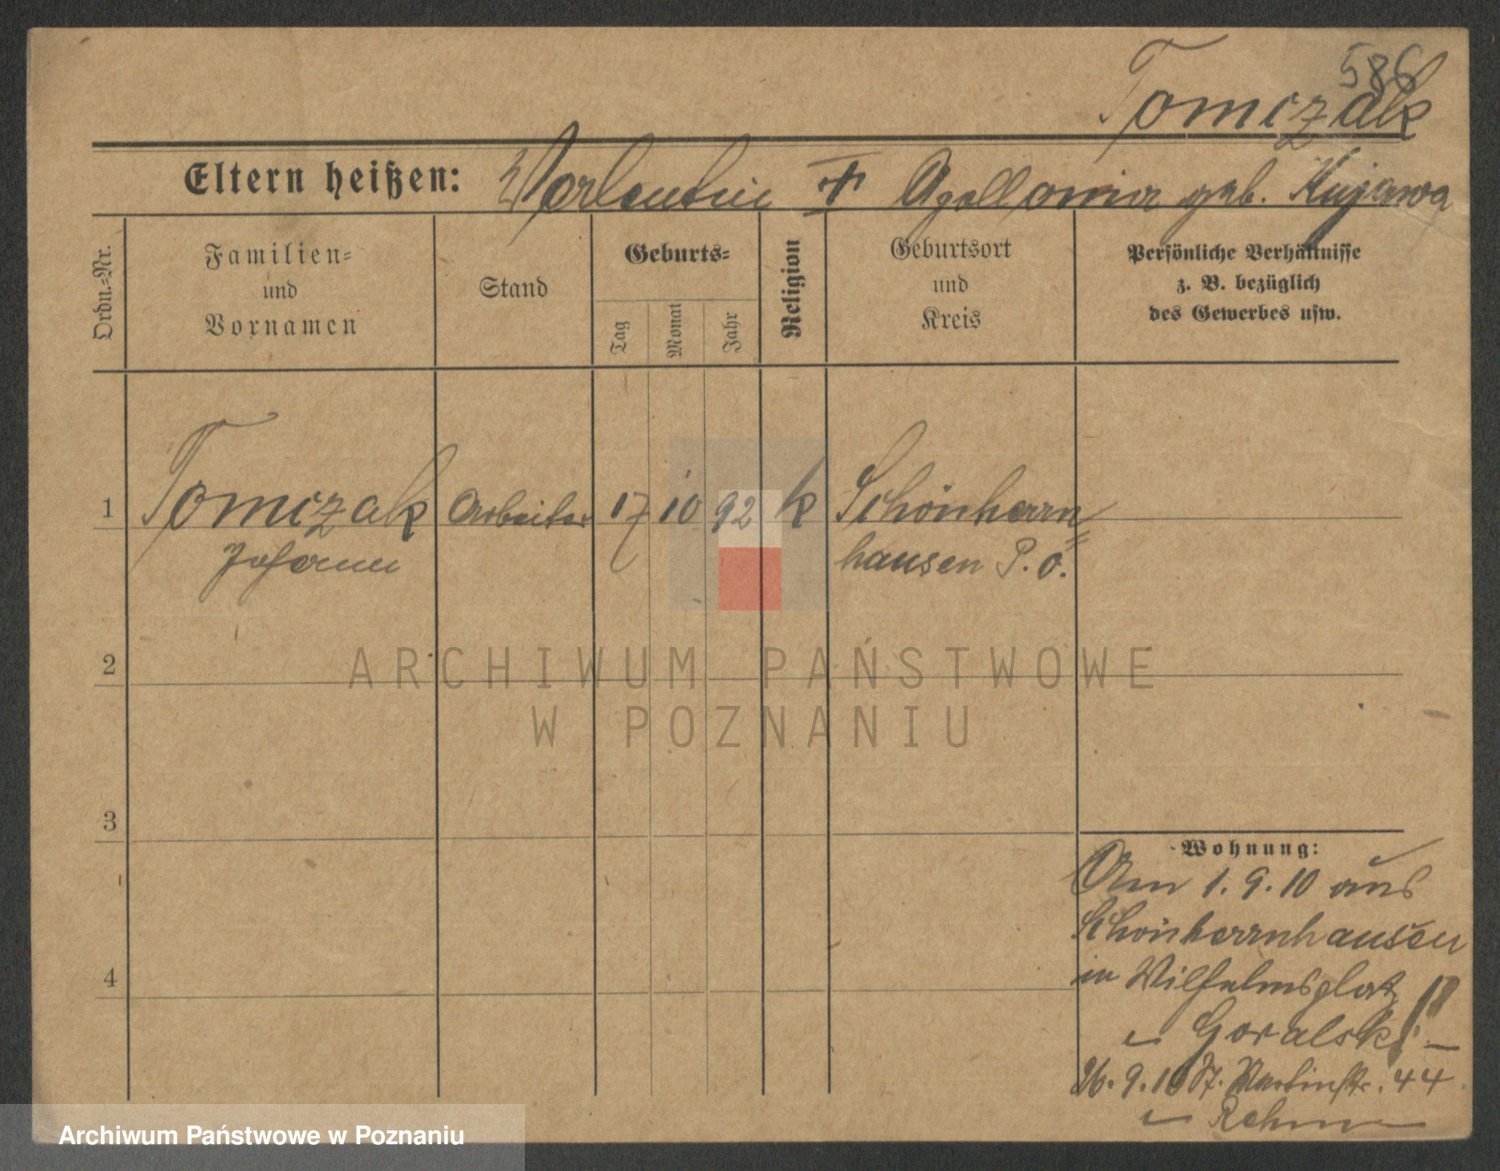 586
Tomczak
Eltern heißen: Valentin + Apollonia geb. Kujawa
Ordn.-Nr.
Familien-
und
Vornamen
Stand
Geburts-
Tag
Monat
Jahr
Religion
Geburtsort
und
Kreis
Persönliche Verhältnisse
z. B. bezüglich
des Gewerbes usw.
1 Tomczak Arbeiter 17 10 92 k Schönherrn
Johann hausen P. O.
2
ARCHIWUM PAŃSTWOWE
W POZNANIU
3
4
Wohnung:
Am 1. 9. 10 aus
Schönherrnhausen
in Wilhelmsplatz 18
Goralski
26. 9. 10 St. Martinstr. 44
Rehm
Archiwum Państwowe w Poznaniu